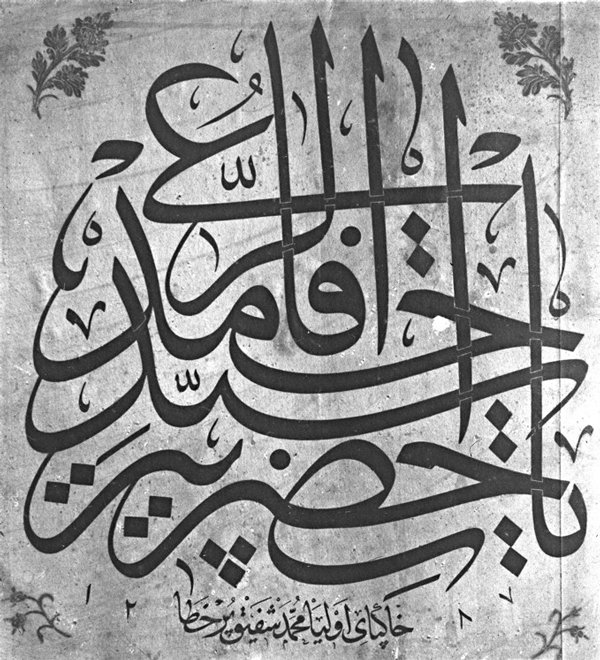 يا حضرت پير سيد احمد الرفاعى
خاكپاى اوليا محمد شفيق پر خطا
١٢٨٧